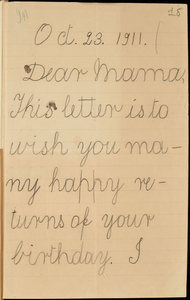 Oct. 23. 1911.
Dear Mama,
This letter is to
wish you ma-
ny happy re-
turns of your
birthday. I